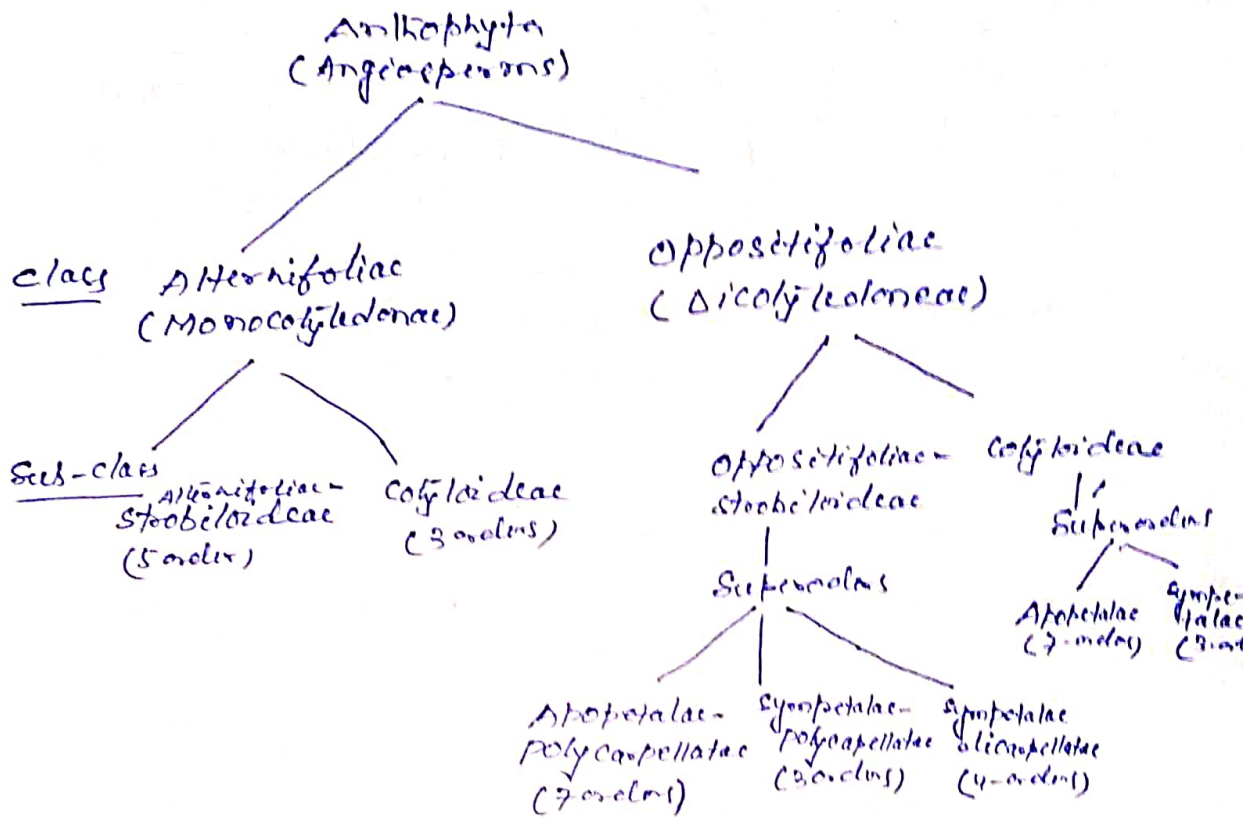 Anthophyta
(Angiosperms)
class Alternifoliae
(Monocotyledonae)
Oppositifoliae
(Dicotyledoneae)
Sub-class
Alternifoliae-
Strobiloideae
(5 order)
Cotyloideae
(3 orders)
Oppositifoliae-
Strobiloideae
Cotyloideae
Superorders
Superorders
Apopetalae
(7-orders)
Sympe-
talae
Apopetalae-
polycarpellatae
(7 orders)
Sympetalae-
polycapellatae
(3 orders)
Sympetalae
olicarpellatae
(4-orders)